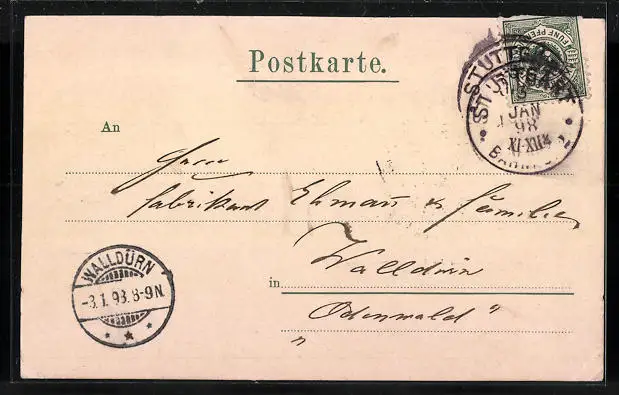 FÜNF PFE
STUTTGART
JAN
98
XI-XII
BAHNH
Postkarte.
An
Herrn
Fabrikant Ehmann & Familie
Walldürn
in
"Odenwald"
WALLDÜRN
-3.1.98.8-9N.